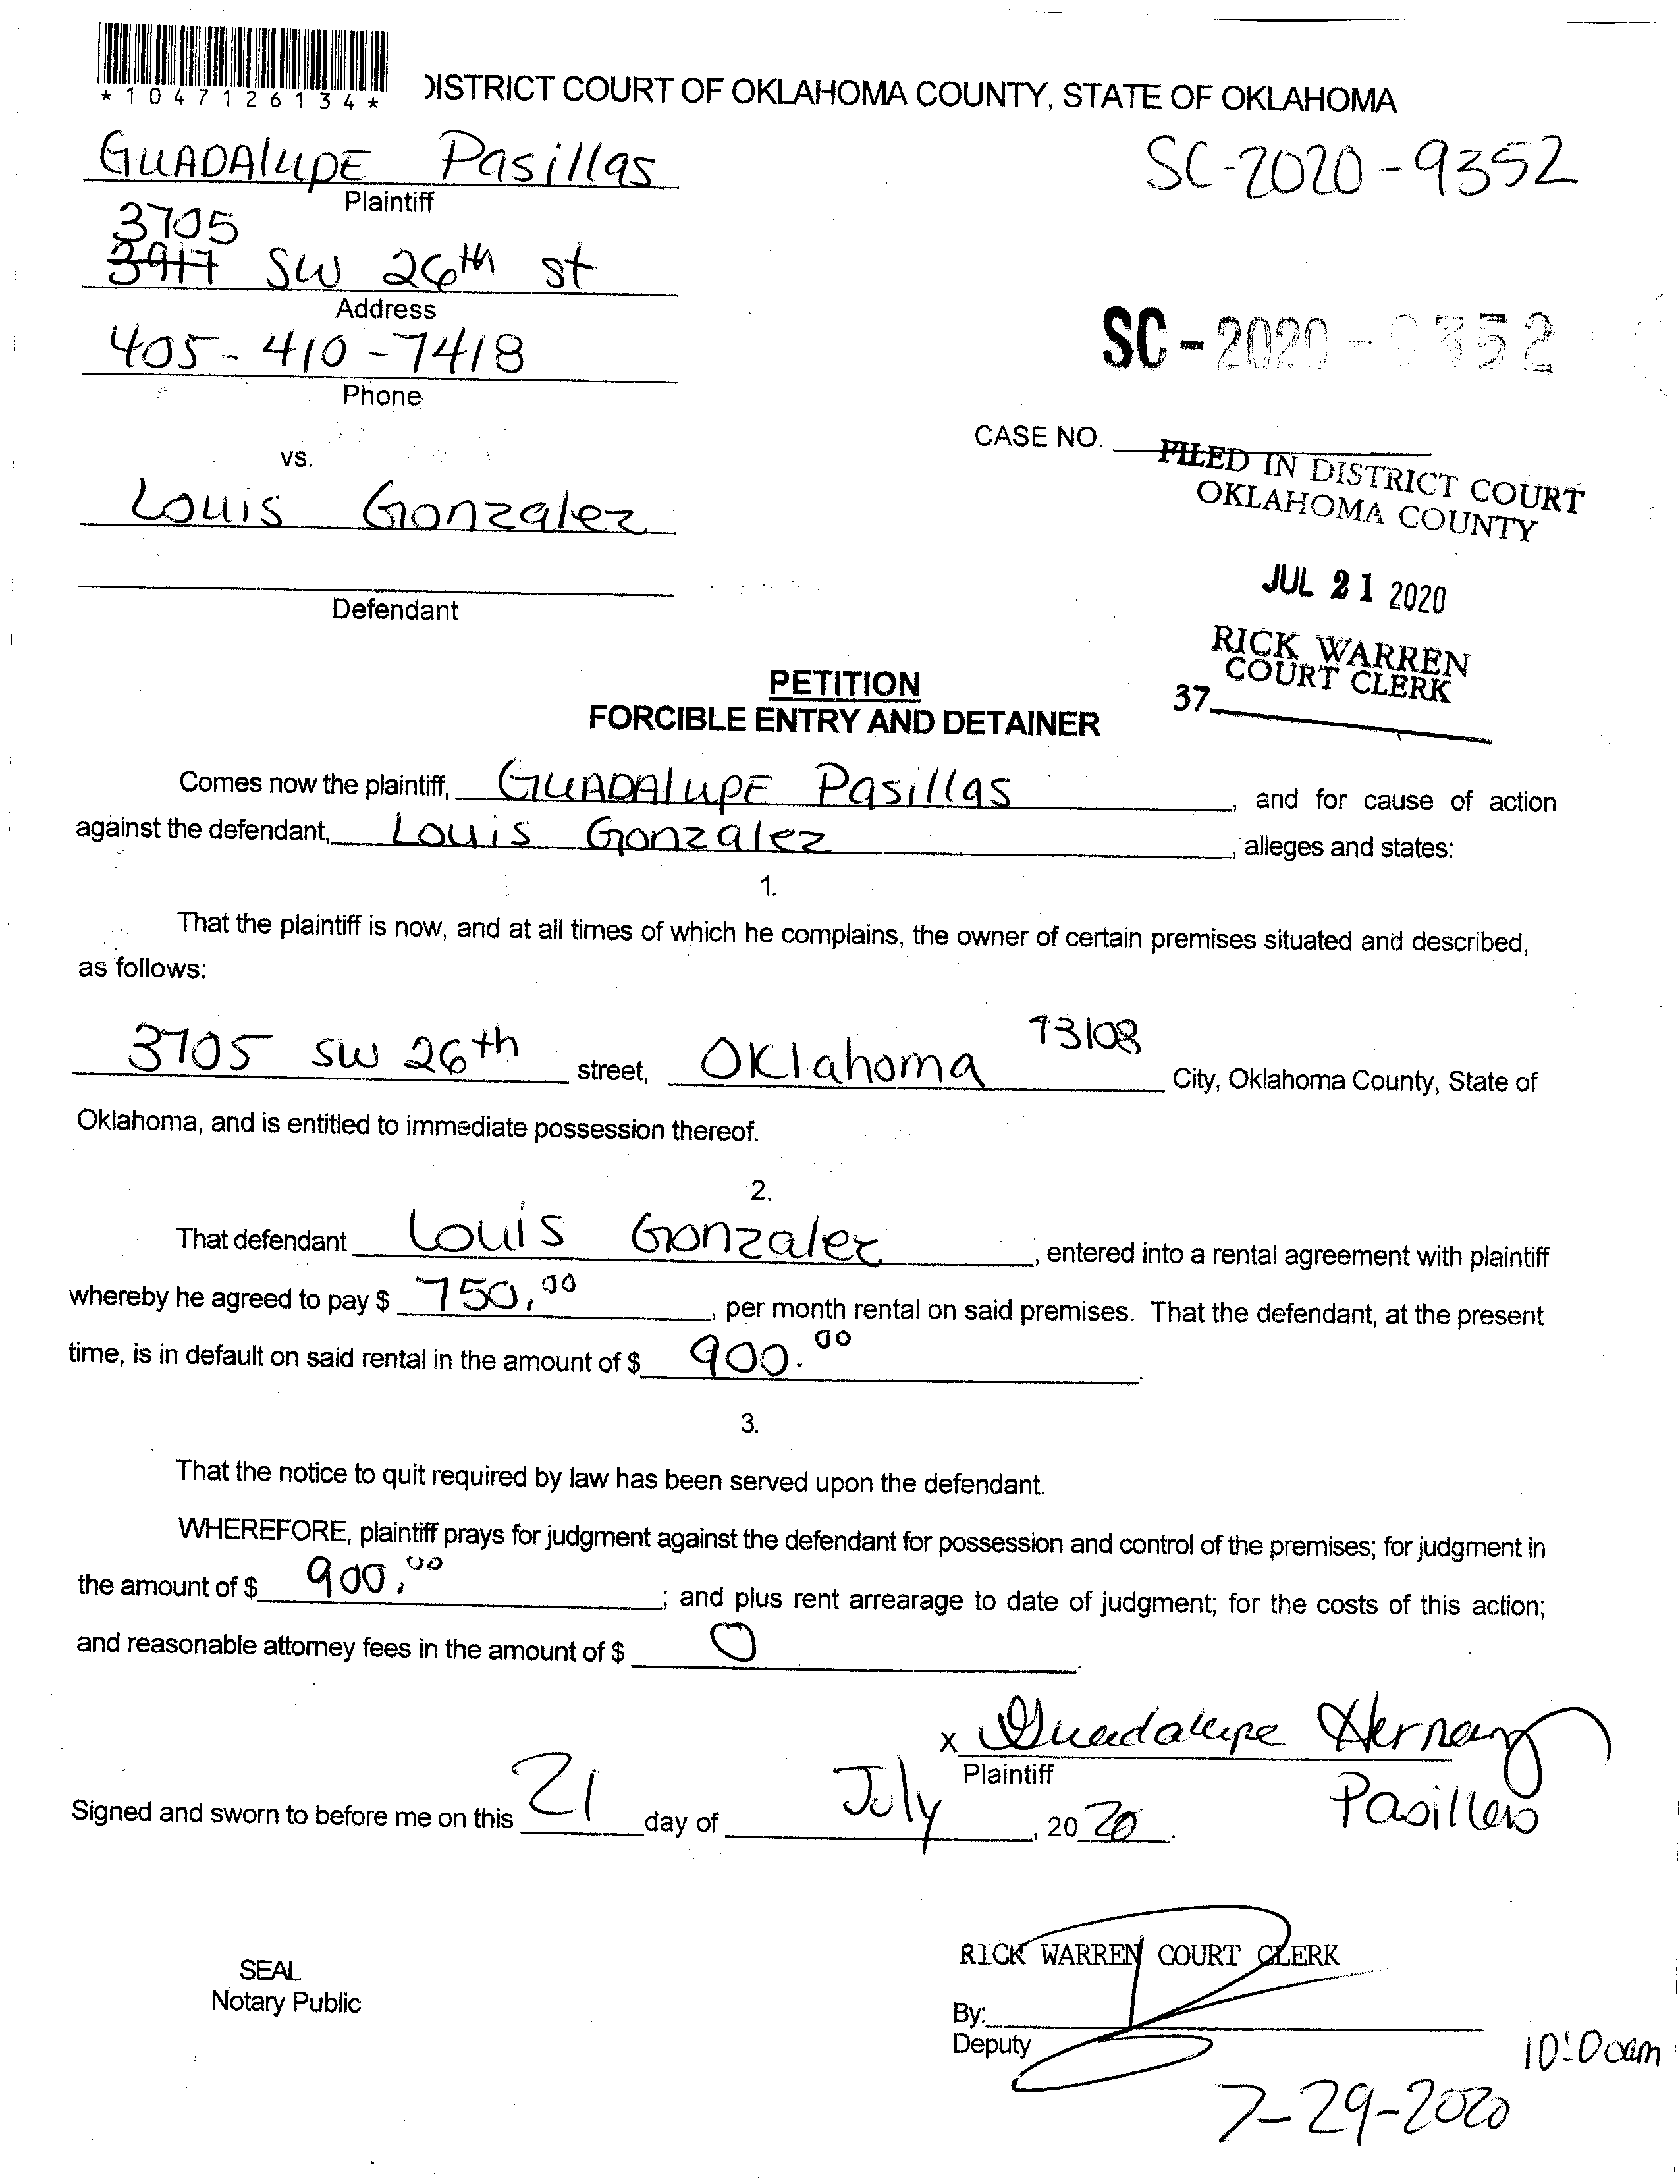 *1047126134*
DISTRICT COURT OF OKLAHOMA COUNTY, STATE OF OKLAHOMA
GUADAlupE Pasillas
SC-2020-9352
Plaintiff
3705
3917 SW 26th st
Address
SC-2020-9352
405-410-7418
Phone
CASE NO.
vs.
FILED IN DISTRICT COURT
OKLAHOMA COUNTY
Louis Gonzalez
JUL 21 2020
Defendant
RICK WARREN
COURT CLERK
37
PETITION
FORCIBLE ENTRY AND DETAINER
Comes now the plaintiff, GUADAlupE Pasillas, and for cause of action
against the defendant, Louis Gonzalez, alleges and states:
1.
That the plaintiff is now, and at all times of which he complains, the owner of certain premises situated and described,
as follows:
3705 SW 26th street, Oklahoma 73108 City, Oklahoma County, State of
Oklahoma, and is entitled to immediate possession thereof.
2.
That defendant Louis Gonzalez, entered into a rental agreement with plaintiff
whereby he agreed to pay $ 750.00, per month rental on said premises. That the defendant, at the present
time, is in default on said rental in the amount of $ 900.00.
3.
That the notice to quit required by law has been served upon the defendant.
WHEREFORE, plaintiff prays for judgment against the defendant for possession and control of the premises; for judgment in
the amount of $ 900.00; and plus rent arrearage to date of judgment; for the costs of this action;
and reasonable attorney fees in the amount of $ 0.
x Guadalupe
Plaintiff
Pasillas
Signed and sworn to before me on this 21 day of July, 2020.
RICK WARREN COURT CLERK
SEAL
Notary Public
By:
Deputy
10:00am
7-29-2020